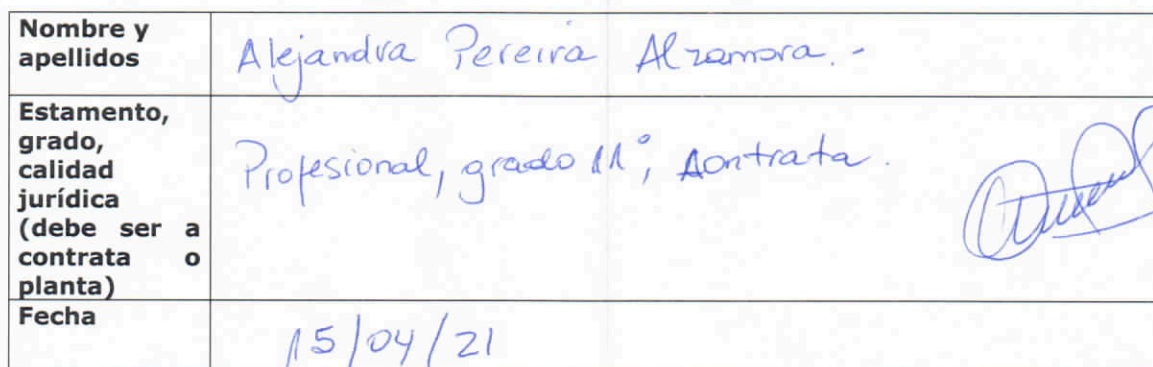 Nombre y
apellidos
Alejandra Pereira Alzamora.-
Estamento,
grado,
calidad
jurídica
(debe ser a
contrata o
planta)
Profesional, grado 11°, Aontrata.
Fecha
15/04/21